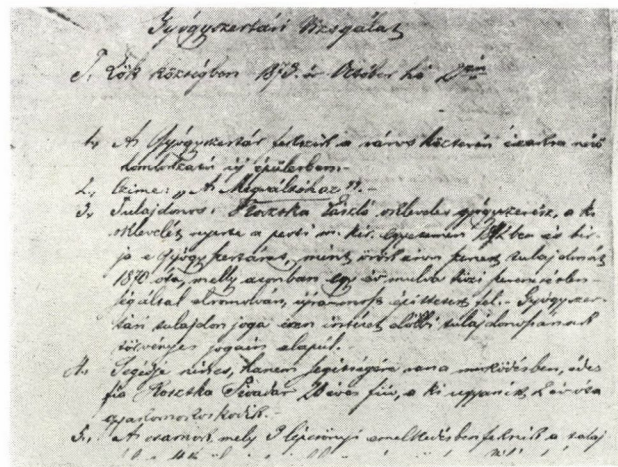 Gyógyszertári Vizsgálat
T. Lök községben 1873. év October hó 2án
1, A Gyógyszertár fekszik a város közterén északra néző
homlokzatú új épületben.-
2, Czime: „A Megváltóhoz".-
3, Tulajdonos: Kosztka László okleveles gyógyszerész, a ki
oklevelét nyerte a pesti m. kir. egyetemen és bir-
ja e Gyógyszertárat, mint örök áron szerzett tulajdonát
1870 óta, melly azonban egy év mulva
által elromolván, újonnan építtetett fel.- Gyógyszer-
tári tulajdon joga ezen intézet előbbi tulajdonosának
törvényes jogain alapúl.-
4, Segédje nincs, hanem segítségére van a működésben, édes
fia Kosztka Tivadar 20 éves fiú, a ki ugyanitt 2 év óta
gyakornokoskodik.-
5, A csarnok, mely 3 lépcsőnyi emelkedésben fekszik a talaj